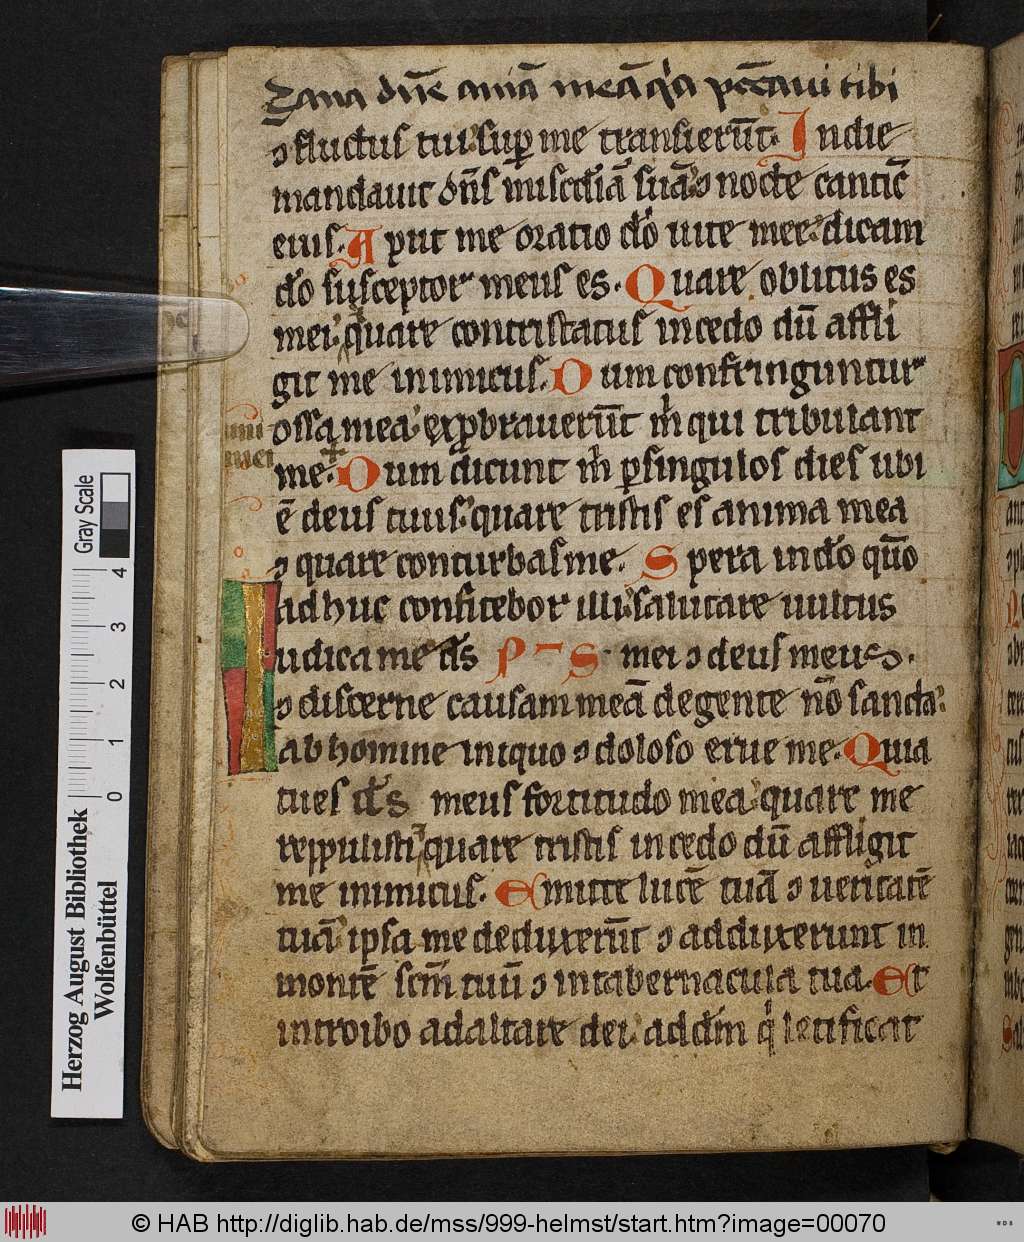 Sana dn̄e aīam meā q̓a pcc̄aui tibi
ꝯ fluctus tui sup̱ me transierūt. In die
mandauit dn̄s misc̄diā suā ꝯ nocte cantic̄
eius. Aput me oratio dō uite mee dicam
dō susceptor meus es. Quare oblitus es
mei quare contristatus incedo dū affli
git me inimicus. Dum confringuntur
ossa mea exprobrauerūt m̄ qui tribulant
me. Dum dicunt m̄ ꝑ singulos dies ubi
ē deus tuus quare tristis es anima mea
ꝯ quare conturbas me. Spera in dō qm̄o
adhuc confitebor illi salutare uultus
mei ꝯ deus meus.
PS
Iudica me ds̄
ꝯ discerne causam meā de gente nō sancta
ab homine iniquo ꝯ doloso erue me. Quia
tu es ds̄ meus fortitudo mea quare me
reppulisti quare tristis incedo dū affligit
me inimicus. Emitte lucē tuā ꝯ ueritatē
tuā ipsa me deduxerūt ꝯ adduxerunt in
montē scm̄ tuū ꝯ in tabernacula tua. Et
introibo ad altare dei ad dm̄ q̓ letificat
Herzog August Bibliothek
Wolfenbüttel
Gray Scale
0 1 2 3 4
© HAB http://diglib.hab.de/mss/999-helmst/start.htm?image=00070